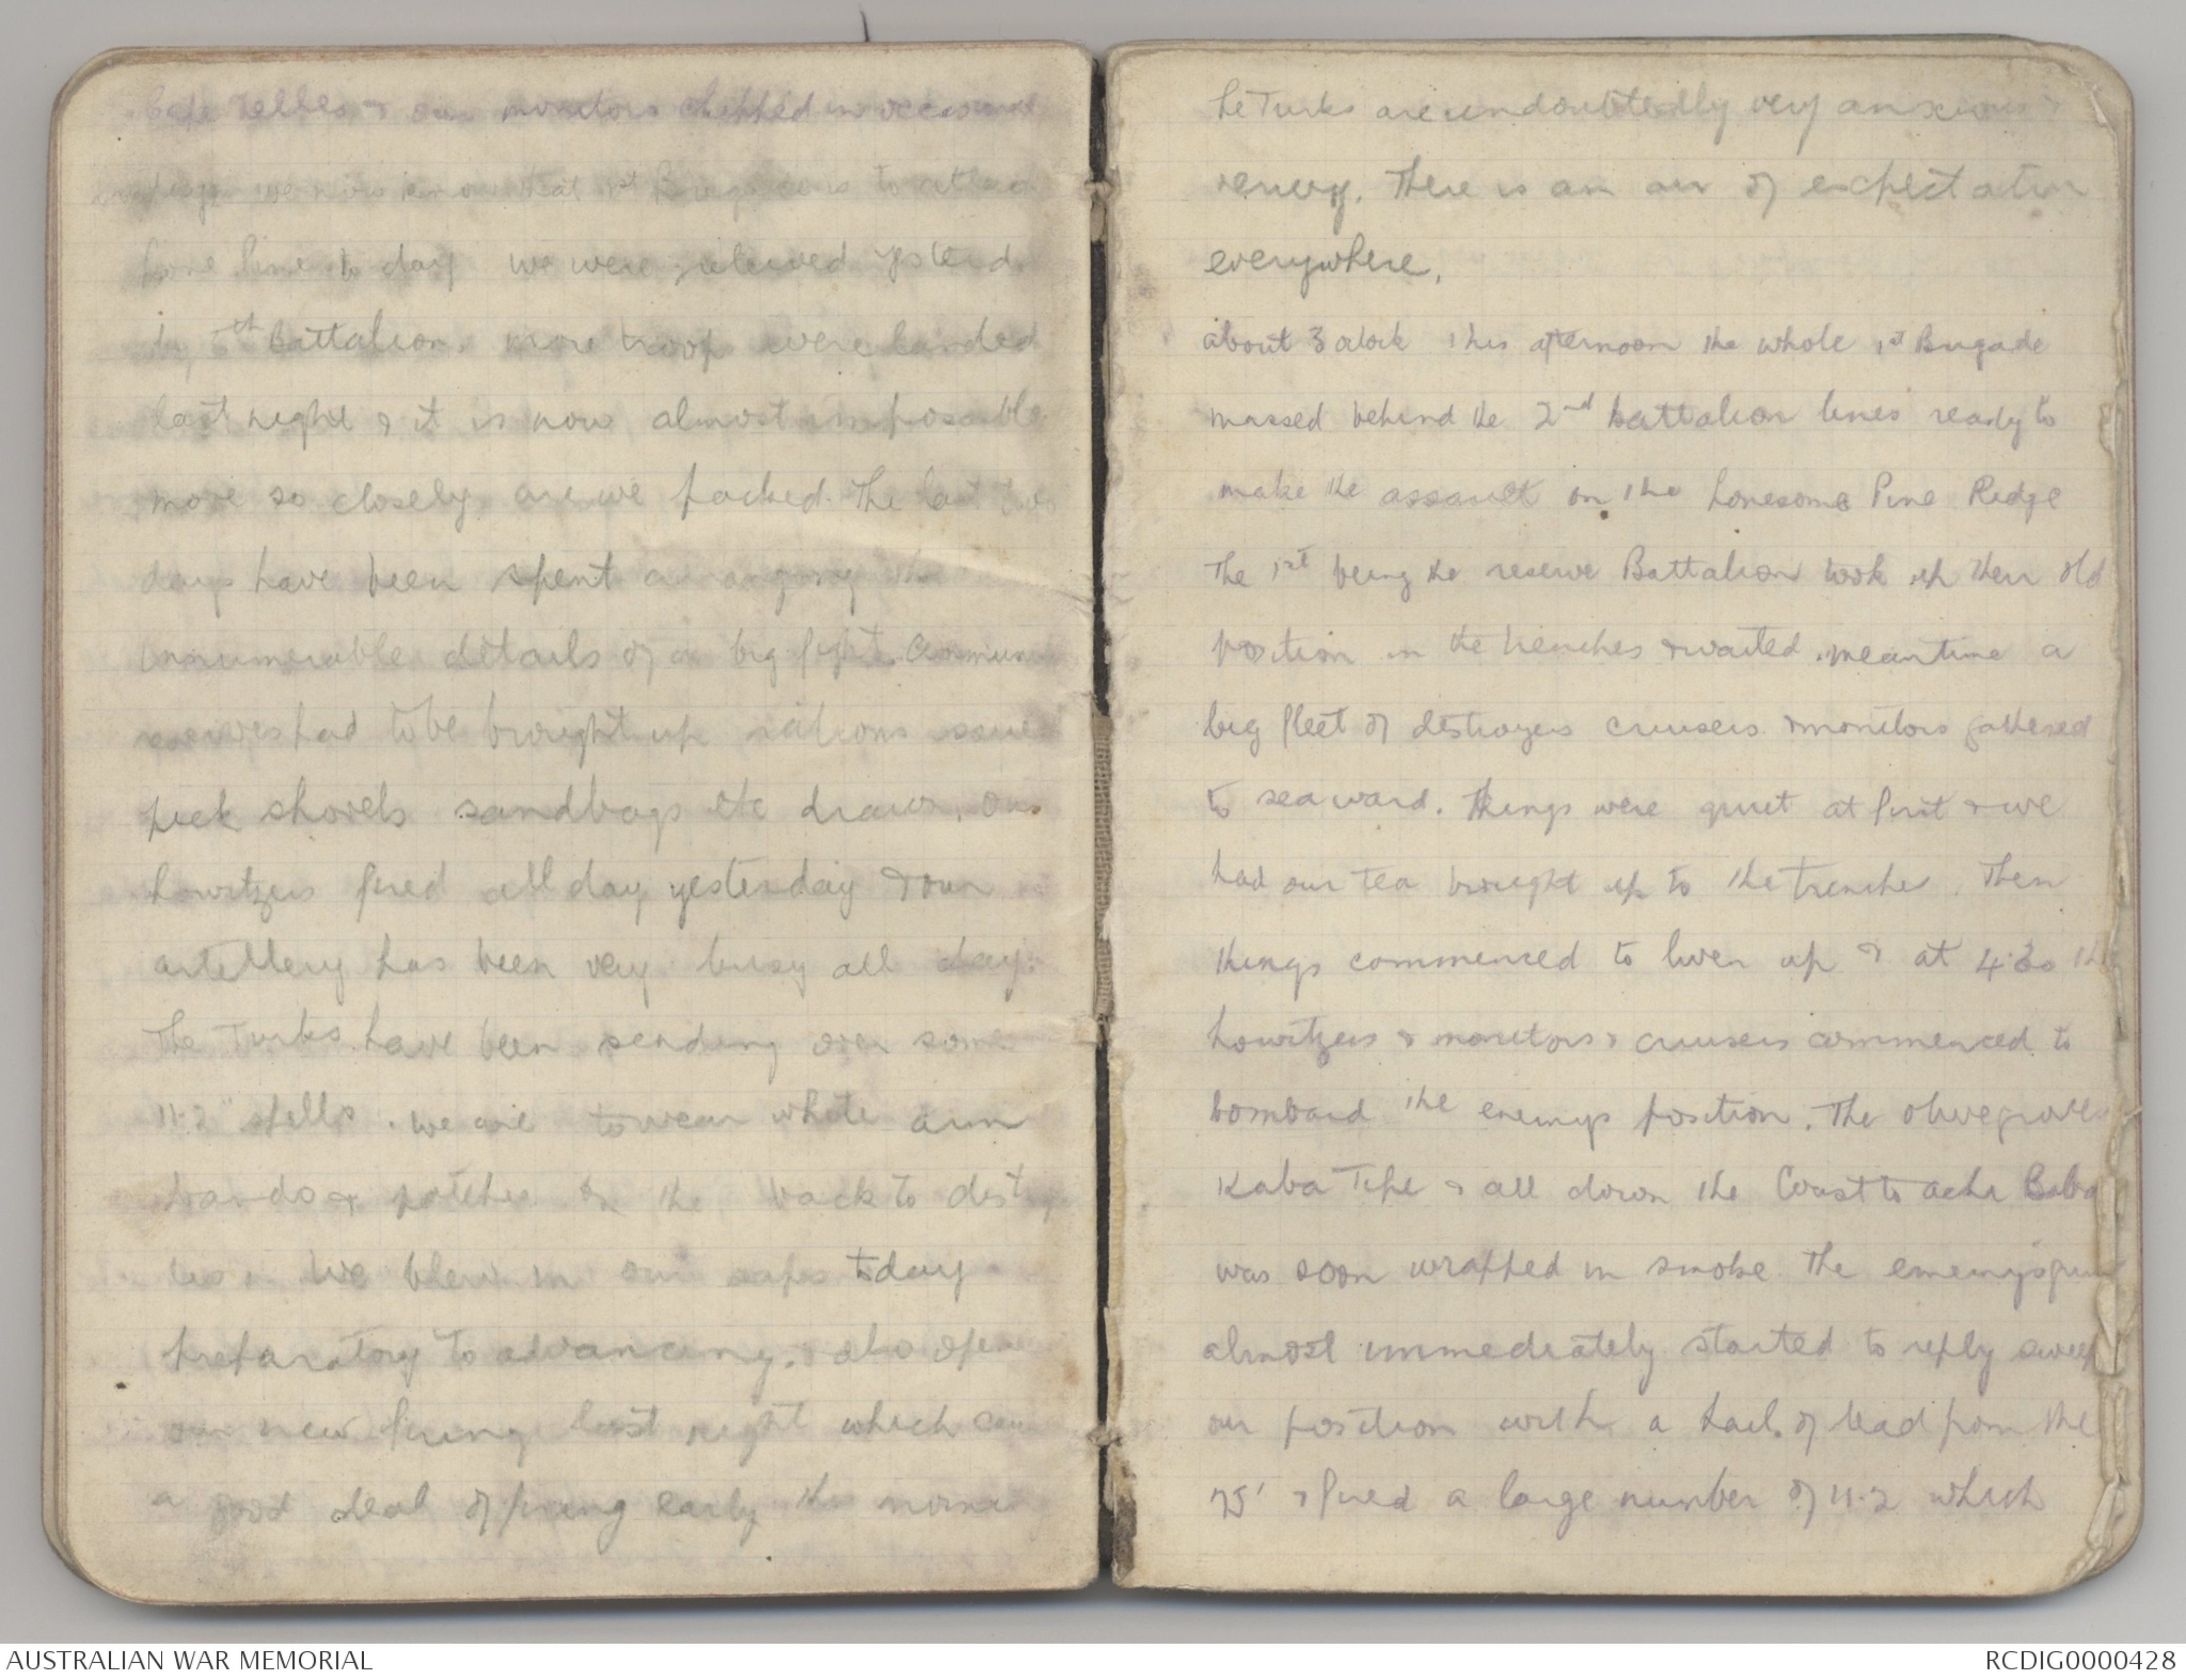 Cape Helles & our monitors chipped in occasional
we now know that 1st Brigade is to attack
pine line to day we were relieved yesterd
by 5th Battalion. more troops were landed
last night & it is now almost impossible
move so closely are we packed. The last two
days have been spent arranging the
innumerable details of a big fight. Ammun
reserves had to be brought up rations issue
pick shovels sandbags etc drawn. Our
howitzers fired all day yesterday & our
artillery has been very busy all day.
The Turks have been sending over some
11.2" shells. we are to wear white arm
bands & patches on the back to dist
us. We blew in our saps today
preparatory to advancing. also open
our new firing last night which cau
a good deal of firing early this morni
The Turks are undoubtedly very anxious &
nervy. There is an air of expectation
everywhere.
about 3 oclock this afternoon the whole 1st Brigade
massed behind the 2nd battalion lines ready to
make the assault on the Lonesome Pine Ridge
The 1st being the reserve Battalion took up their old
position in the trenches & waited. meantime a
big fleet of destroyers cruisers & monitors gathered
to seaward. Things were quiet at first & we
had our tea brought up to the trenches. Then
things commenced to liven up & at 4.30 the
howitzers & monitors & cruisers commenced to
bombard the enemys position. The olive groves
Kaba Tepe & all down the Coast to Achi Baba
was soon wrapped in smoke. The enemys guns
almost immediately started to reply sweep
our position with a hail of lead from the
75' & fired a large number of 11.2 which
AUSTRALIAN WAR MEMORIAL
RCDIG0000428